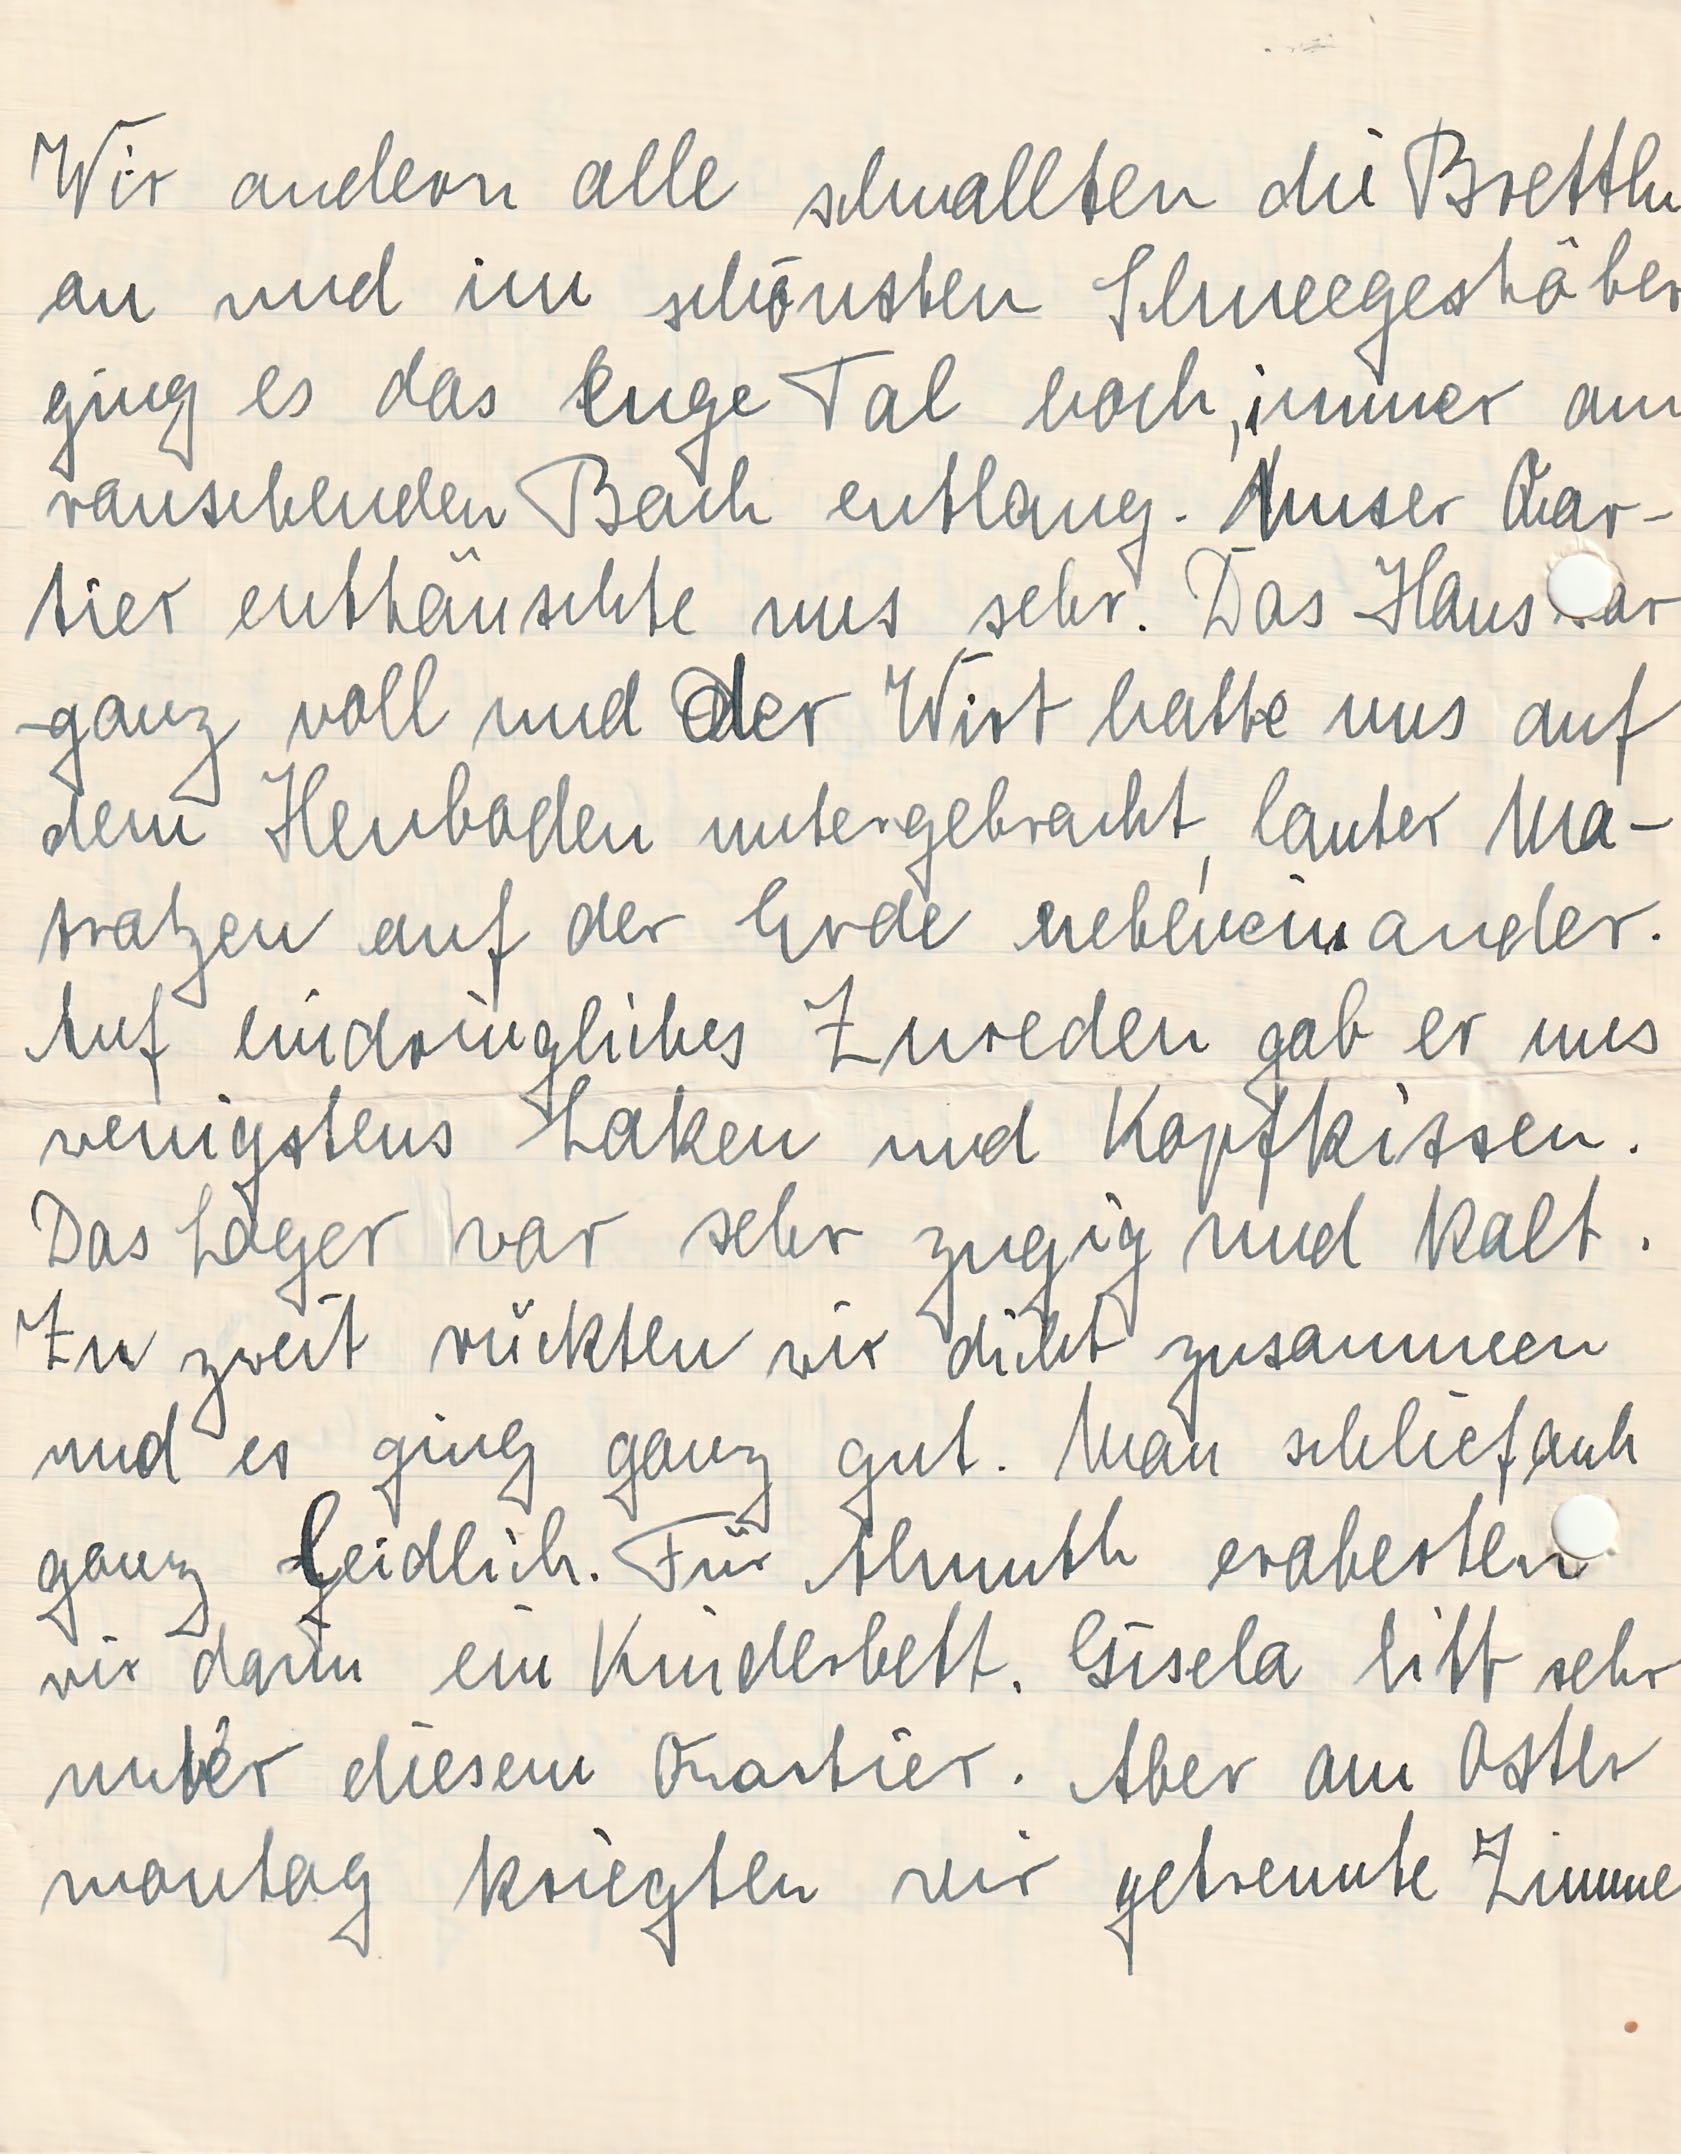 Wir andern alle schnallten die Brettln
an und im schönsten Schneegestöber
ging es das enge Tal hoch, immer am
rauschenden Bach entlang. Unser Quar-
tier enttäuschte uns sehr. Das Haus war
ganz voll und der Wirt hatte uns auf
dem Heuboden untergebracht, lauter Ma-
tratzen auf der Erde nebeneinander.
Auf eindringliches Zureden gab er uns
wenigstens Laken und Kopfkissen.
Das Lager war sehr zugig und kalt.
Zu zweit rückten wir dicht zusammen
und es ging ganz gut. Man schlief auch
ganz leidlich. Für Almuth eroberten
wir dann ein Kinderbett. Gisela litt sehr
unter diesem Quartier. Aber am Oster
montag kriegten wir getrennte Zimme